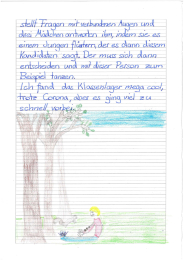 stellt Fragen mit verbundenen Augen und
drei Mädchen antworten ihm, indem sie es
einem Jungen flüstern, der es dann diesem
Kandidaten sagt. Der muss sich dann
entscheiden und mit dieser Person zum
Beispiel tanzen.
Ich fand das Klassenlager mega cool,
trotz Corona, aber es ging viel zu
schnell vorbei.